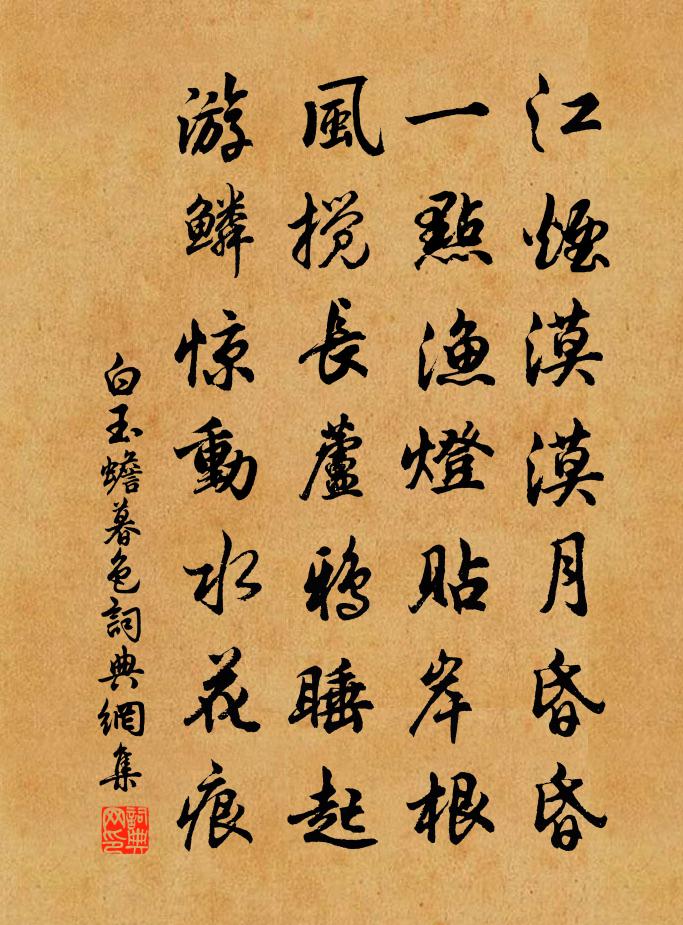 江煙漠漠月昏昏
一點漁燈貼岸根
風搅長蘆鴉睡起
游鱗惊動水花痕
白玉蟾暮色詞典網集
詞典网印